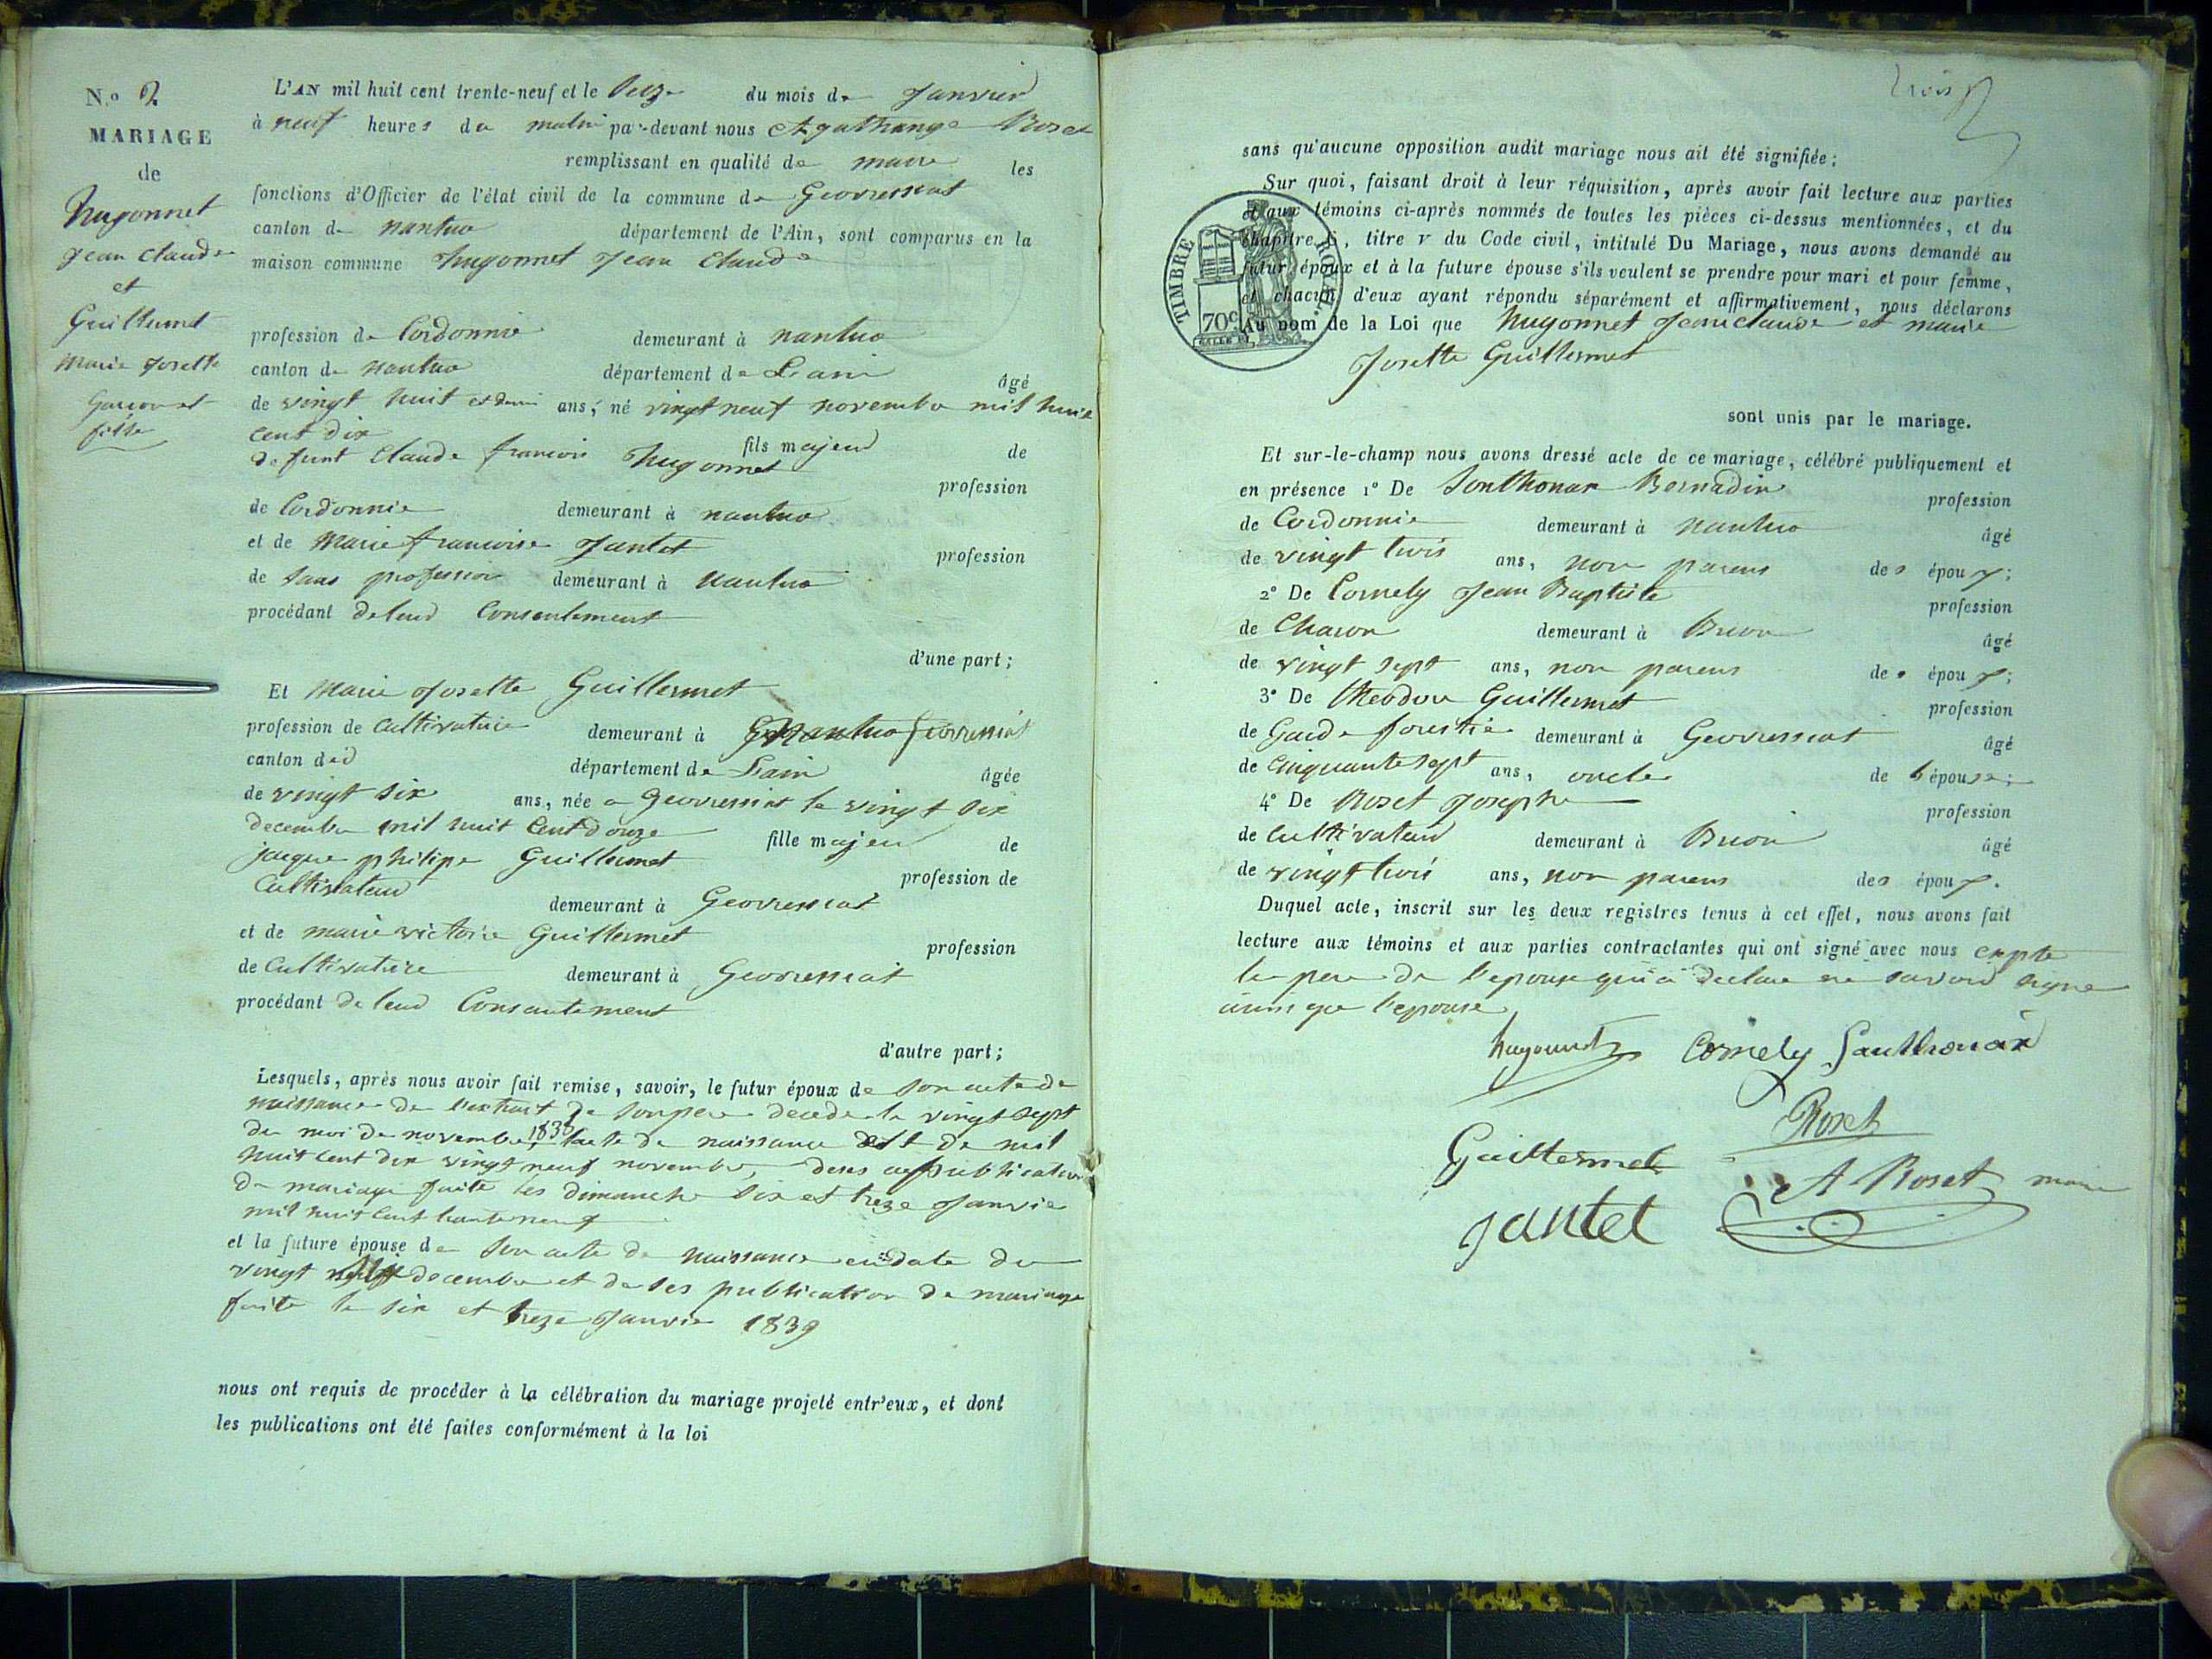 N.o 2
MARIAGE
de
hugonnet
Jean Claude
et
Guillermet
Marie Josette
Garcon et
fille
L'AN mil huit cent trente-neuf et le Seize du mois de Janvier
à neuf heures du matin par-devant nous Agathange Roset
remplissant en qualité de maire les
fonctions d'Officier de l'état civil de la commune de Geovressiat
canton de nantua département de l'Ain, sont comparus en la
maison commune hugonnet Jean Claude
profession de Cordonnie demeurant à nantua
canton de nantua département de Lain âgé
de vingt huit et demi ans, né vingt neuf novembre mil huit
cent dix fils majeur de
defunt Claude francois hugonnet profession
de Cordonnie demeurant à nantua
et de Marie francoise Jantet profession
de sans profession demeurant à nantua
procédant de leur Consentement
d'une part;
Et Marie Josette Guillermet
profession de Cultivatrice demeurant à Geovressiat
canton d id département de Lain âgée
de vingt six ans, née a Geovressiat le vingt six
decembre mil huit Cent douze fille majeur de
jacque philipe Guillermet profession de
Cultivateur demeurant à Geovressiat
et de marie victoire Guillermet profession
de Cultivatrice demeurant à Geovressiat
procédant de leur Consentement
d'autre part;
Lesquels, après nous avoir fait remise, savoir, le futur époux de son acte de
naissance de l'extrait de son pere decede le vingt sept
du moi de novembre 1838 lacte de naissance est de mil
huit cent dix vingt neuf novembre, publication
de mariage faite les dimanche six et treze Janvie
mil huit cent trente neuf
et la future épouse de son acte de naissance en date du
vingt decembre et de ses publication de mariage
faite le six et treze Janvie 1839
nous ont requis de procéder à la célébration du mariage projeté entr'eux, et dont
les publications ont été faites conformément à la loi
trois
sans qu'aucune opposition audit mariage nous ait été signifiée;
Sur quoi, faisant droit à leur réquisition, après avoir fait lecture aux parties
et aux témoins ci-après nommés de toutes les pièces ci-dessus mentionnées, et du
chapitre 6, titre v du Code civil, intitulé Du Mariage, nous avons demandé au
futur époux et à la future épouse s'ils veulent se prendre pour mari et pour femme,
et chacun d'eux ayant répondu séparément et affirmativement, nous déclarons
Au nom de la Loi que hugonnet Jean claude et marie
Josette Guillermet
TIMBRE ROYAL
70c
sont unis par le mariage.
Et sur-le-champ nous avons dressé acte de ce mariage, célébré publiquement et
en présence 1° De Sonthonax Bernadin profession
de Cordonnie demeurant à nantua âgé
de vingt trois ans, non parens des époux;
2° De Cornely Jean Baptiste profession
de Charon demeurant à Brion âgé
de vingt sept ans, non parens des époux;
3° De theodore Guillermet profession
de Garde forestie demeurant à Geovressiat âgé
de Cinquante sept ans, oncle de l'épouse;
4° De Roset Joseph profession
de Cultivateur demeurant à Brion âgé
de vingt trois ans, non parens des époux.
Duquel acte, inscrit sur les deux registres tenus à cet effet, nous avons fait
lecture aux témoins et aux parties contractantes qui ont signé avec nous exepte
le pere de l'epouse qui a declare ne savoir signe
ainsi que l'epouse
hugonnet Cornely Sonthonax
Roset
Guillermet
A Roset maire
Jantet